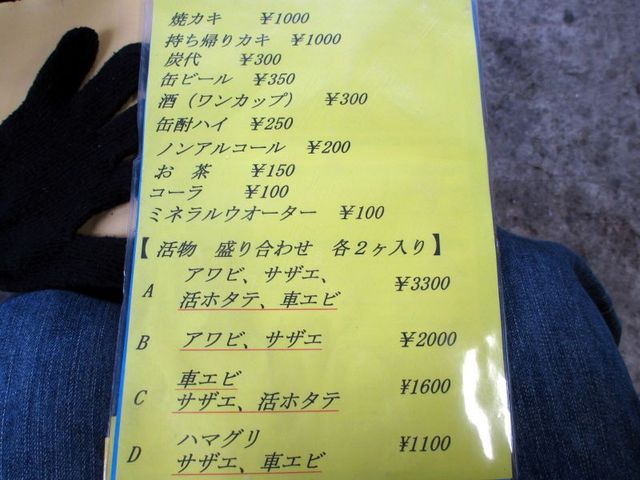 焼カキ ￥1000
持ち帰りカキ ￥1000
炭代 ￥300
缶ビール ￥350
酒（ワンカップ） ￥300
缶酎ハイ ￥250
ノンアルコール ￥200
お 茶 ￥150
コーラ ￥100
ミネラルウオーター ￥100
【 活物 盛り合わせ 各２ヶ入り 】
A アワビ、サザエ、 ￥3300
活ホタテ、車エビ
B アワビ、サザエ ￥2000
車エビ
C サザエ、活ホタテ ¥1600
D ハマグリ ¥1100
サザエ、車エビ